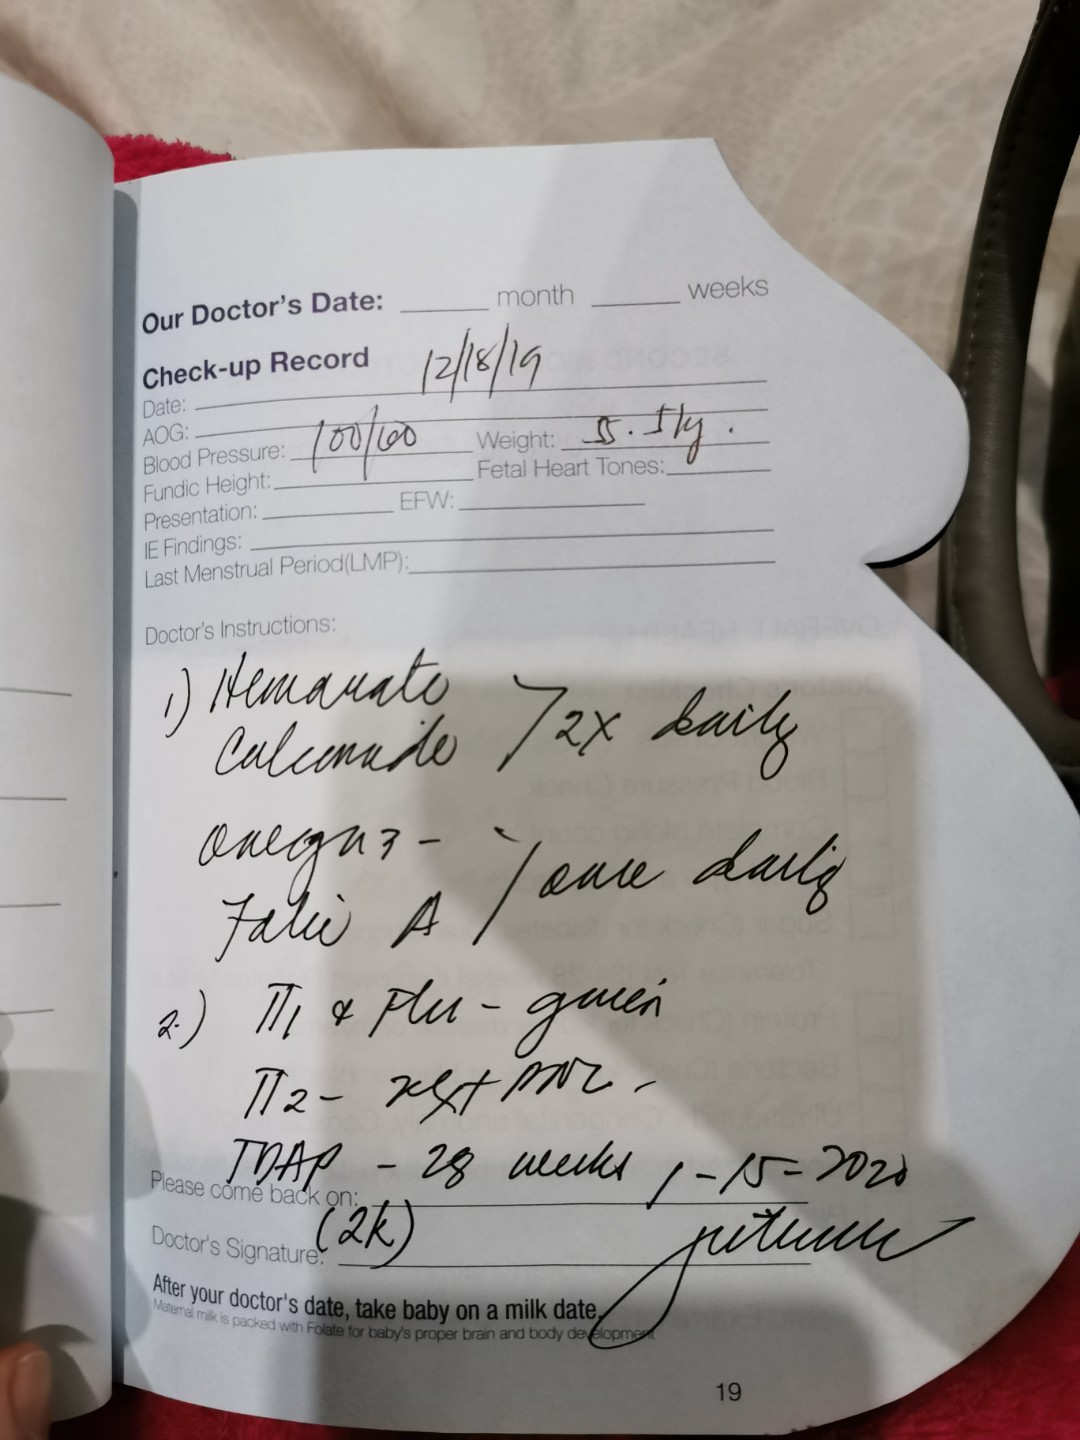 Our Doctor's Date: ______ month ______ weeks
Check-up Record
Date: 12/18/19
AOG:
Blood Pressure: 100/60 Weight:
Fundic Height: Fetal Heart Tones:
Presentation: EFW:
IE Findings:
Last Menstrual Period(LMP):
Doctor's Instructions:
1) Hemarate
Calciumade > 2x daily
Omega 3 -
Folic A / once daily
2.) TT1 & Flu - given
TT2 - next
TDAP - 28 weeks
Please come back on: 1-15-2020
(2k)
Doctor's Signature:
After your doctor's date, take baby on a milk date.
Maternal milk is packed with Folate for baby's proper brain and body development
19